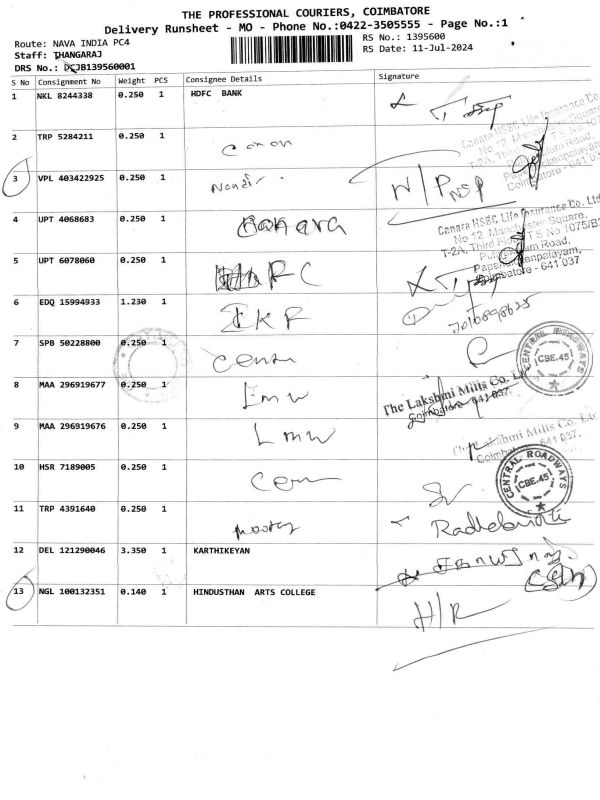 THE PROFESSIONAL COURIERS, COIMBATORE
Delivery Runsheet - MO - Phone No.:0422-3505555 - Page No.:1
Route: NAVA INDIA PC4
RS No.: 1395600
Staff: THANGARAJ
RS Date: 11-Jul-2024
DRS No.: DCJB139560001
S No Consignment No Weight PCS Consignee Details Signature
1 NKL 8244338 0.250 1 HDFC BANK
Canara HSBC Life Insurance Co.
No 12, Manchester Square
2 TRP 5284211 0.250 1 Canan
3 VPL 403422925 0.250 1 Nandi N/P
Coimbatore - 641 037
4 UPT 4068683 0.250 1 Canara
Canara HSBC Life Insurance Co. Ltd
No 12, Manchester Square,
T-2A, Third Floor, T S No 1075/B
Road,
5 UPT 6078060 0.250 1
Coimbatore - 641 037
6 EDQ 15994933 1.230 1 IKF
7010898625
7 SPB 50228800 0.250 1
CENTRAL ROADWAYS
CBE.45
8 MAA 296919677 0.250 1 Lmw
The Lakshmi Mills Co. Lt
Coimbatore 641 037.
9 MAA 296919676 0.250 1 Lmw
The Lakshmi Mills Co. Lt
Coimbatore - 641 037.
10 HSR 7189005 0.250 1
CENTRAL ROADWAYS
CBE.45
11 TRP 4391640 0.250 1
12 DEL 121290046 3.350 1 KARTHIKEYAN
13 NGL 100132351 0.140 1 HINDUSTHAN ARTS COLLEGE H/R